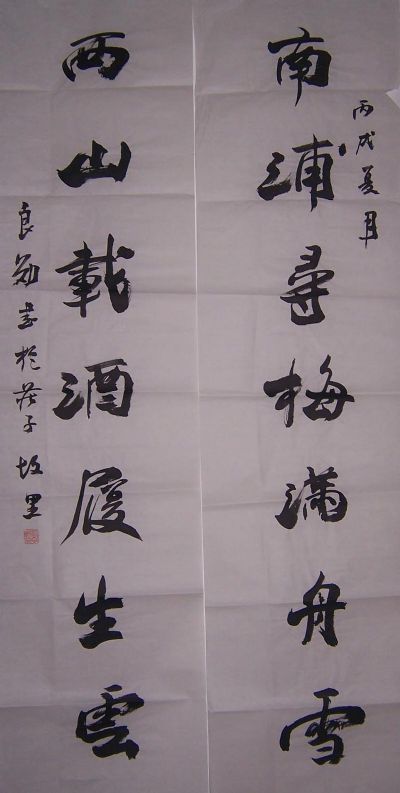 丙戌夏月
南浦尋梅滿舟雪
西山載酒履生雲
良勋书於莊子故里